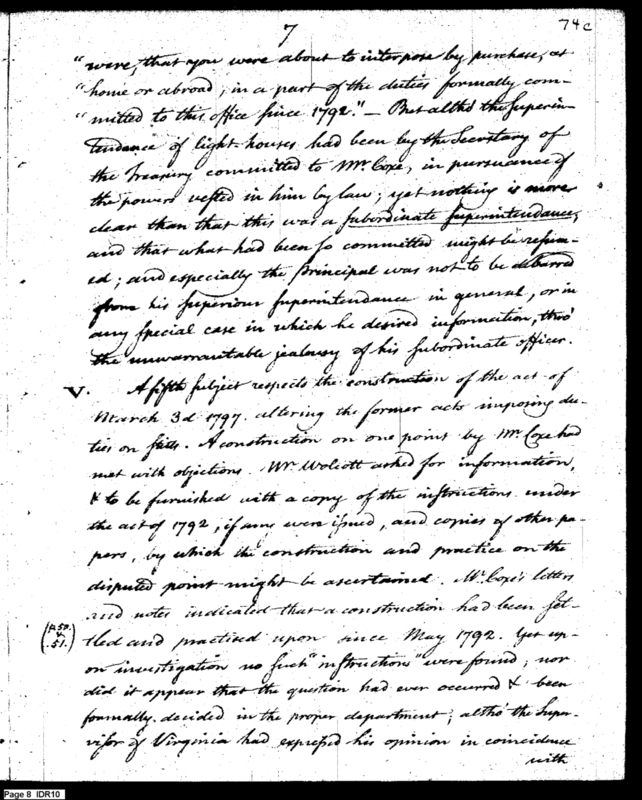 7
74c
"were, that you were about to interpose by purchase, at
"home or abroad, in a part of the duties formally com-
"mitted to this office since 1792." — But altho' the superin-
tendance of light houses had been by the Secretary of
the Treasury committed to Mr. Coxe, in pursuance of
the powers vested in him by law; yet nothing is more
clear than that this was a subordinate superintendance,
and that what had been so committed might be resum-
ed; and especially the Principal was not to be debarred
from his superiour superintendance in general, or in
any special case in which he desired information, thro'
the unwarrantable jealousy of his subordinate officer.
V. A fifth subject respects the construction of the act of
March 3d 1797. altering the former acts imposing du-
ties on stills. A construction on one point by Mr. Coxe had
met with objections. Mr. Wolcott asked for information,
& to be furnished with a copy of the instructions under
the act of 1792, if any were issued, and copies of other pa-
pers, by which the construction and practice on the
disputed point might be ascertained. Mr. Coxe's letters
and notes indicated that a construction had been set-
(p. 50. & 51.) tled and practised upon since May 1792. Yet up-
on investigation no such "instructions" were found; nor
did it appear that the question had ever occurred & been
formally decided in the proper department; altho' the Super-
visor of Virginia had expressed his opinion in coincidence
with
Page 8 IDR10